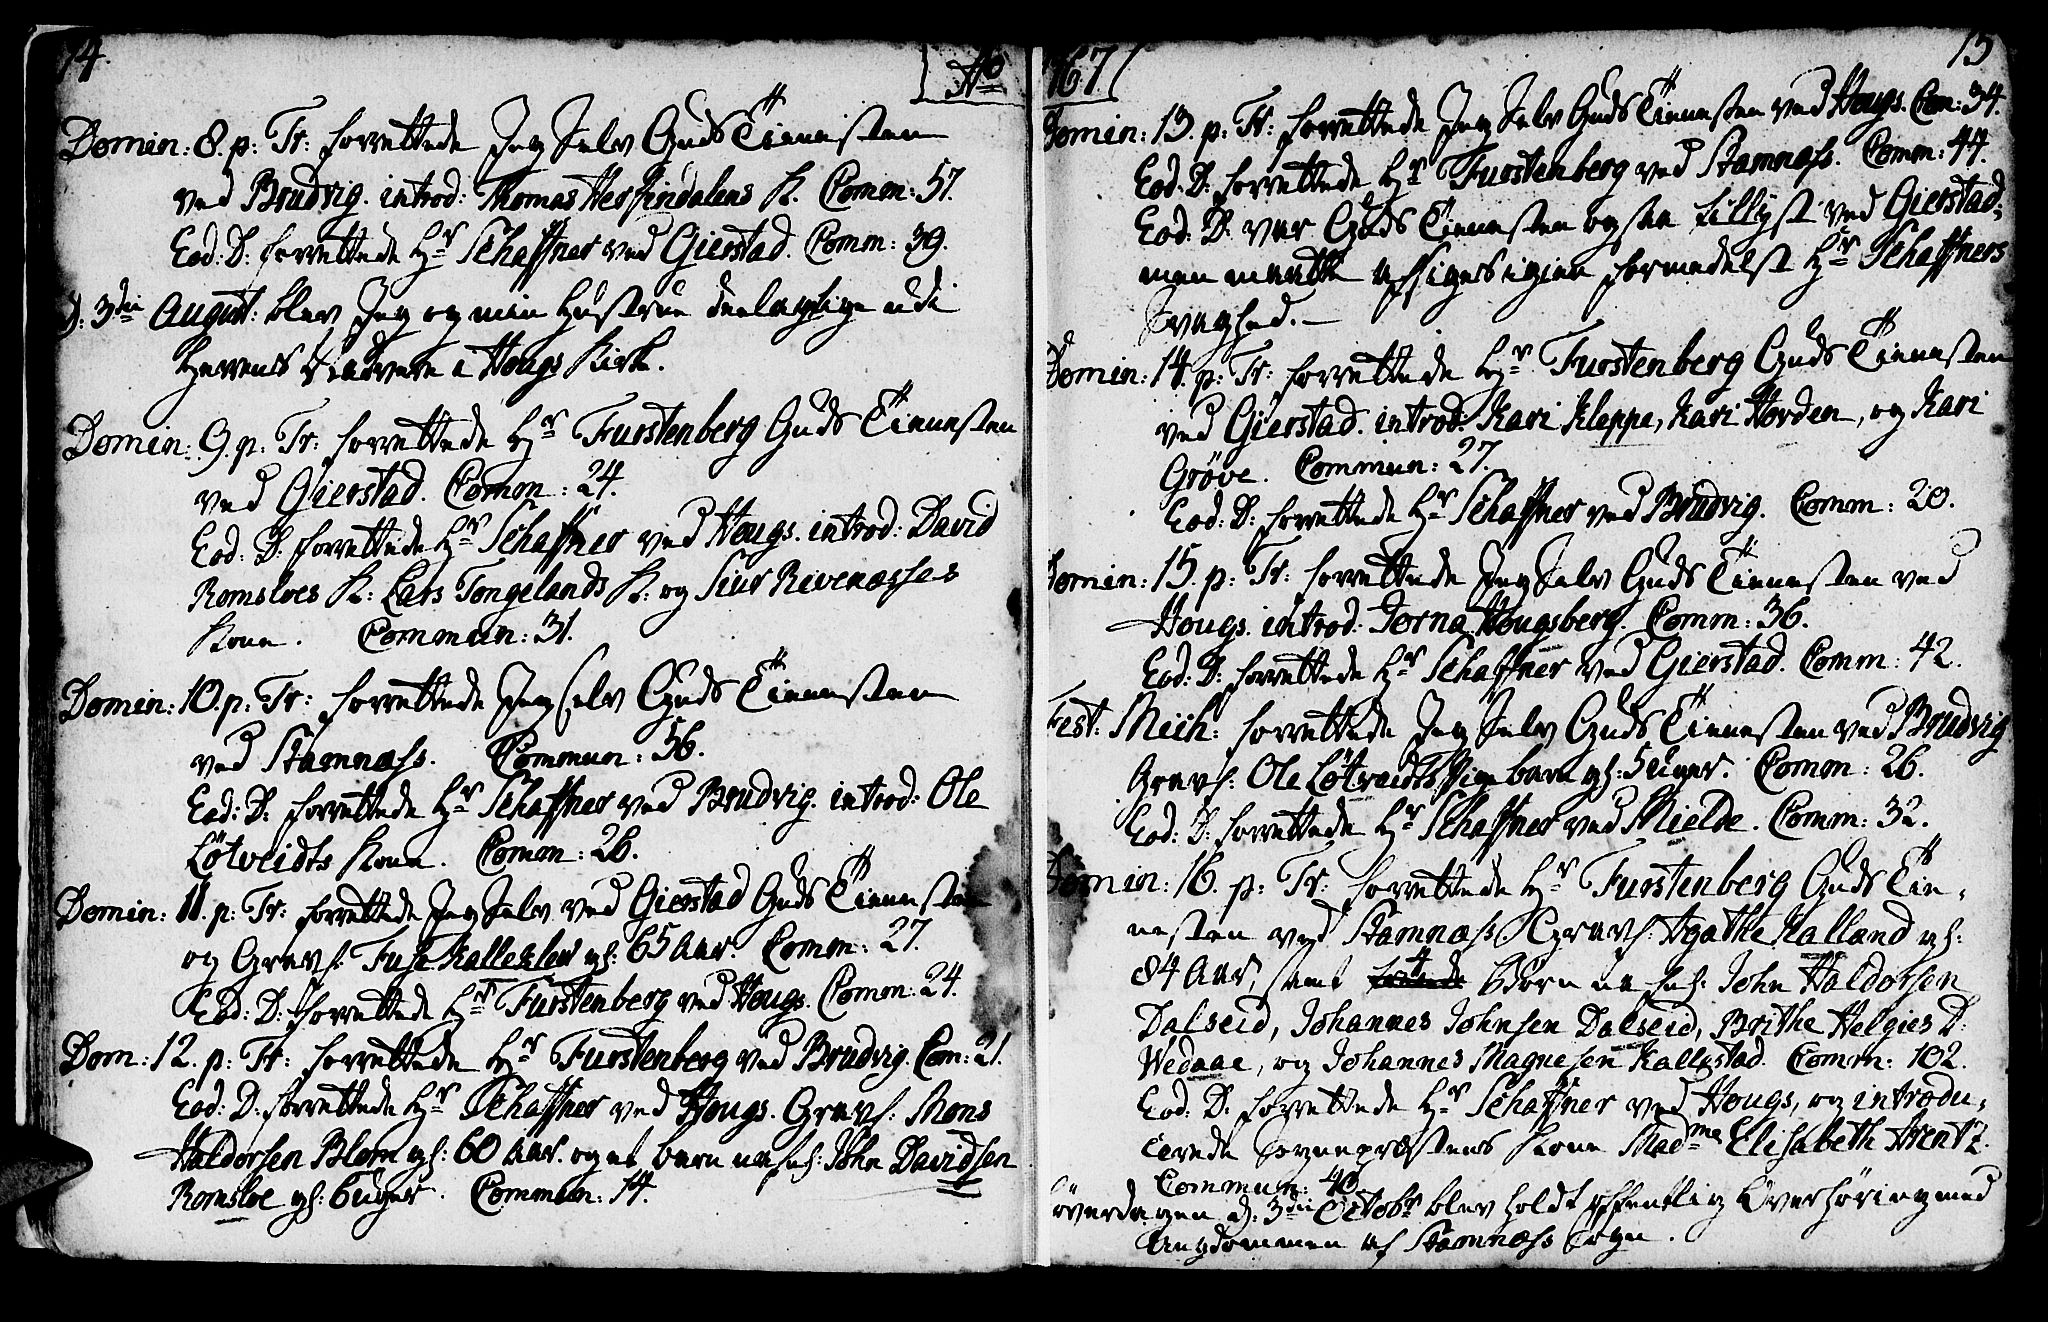 14.
Ao
Domin: 8. p: Tr: forrettede Jeg Selv Guds Tiennesten
ved Brudvig. introd: Thomas Herfindalens K. Comm: 57.
Eod: D: forrettede Hr Schaffner ved Gierstad. Comm: 39.
d: 3die August: blev Jeg og min Hustrue deelagtige udi
Herrens Nadvere i Hougs Kirke.
Domin: 9. p: Tr: forrettede Hr Furstenberg Guds Tiennesten
ved Gierstad. Comm: 24.
Eod: D: forrettede Hr Schaffner ved Hougs. introd: David
Romsloes K: Lars Tongelands K: og Siur Rivenæsses
Kone. Commun: 31.
Domin: 10. p: Tr: forrettede Jeg Selv Guds Tiennesten
ved Stamnæss. Commun: 56.
Eod: D: forrettede Hr Schaffner ved Brudvig. introd: Ole
Lötveidts Kone. Comm: 26.
Domin: 11. p: Tr: forrettede Jeg Selv ved Gierstad Guds Tiennesten
og Gravf. Kalleklev gl: 65 Aar. Comm: 27.
Eod: D: forrettede Hr Furstenberg ved Hougs. Comm: 24.
Dom: 12. p: Tr: forrettede Hr Furstenberg ved Brudvig. Com: 21.
Eod: D: forrettede Hr Schaffner ved Hougs. Gravf: Mons
Haldorsen Blom gl: 60 Aar. og et barn nafnl: John Davidsen
Romsloe gl: 6 uger. Commun: 14.
15
1767
Domin: 13. p: Tr: forrettede Jeg Selv Guds Tiennesten ved Hougs. Com: 34.
Eod: D: forrettede Hr Furstenberg ved Stamnæss. Comm: 44.
Eod: D: var Guds Tiennesten ogsaa tillyst ved Gierstad,
men maatte afsiges igien formedelst Hr Schaffners
Svaghed.
Domin: 14. p: Tr: forrettede Hr Furstenberg Guds Tiennesten
ved Gierstad. introd: Kari Kleppe, Kari Horden, og Kari
Gröve. Commun: 27.
Eod: D: forrettede Hr Schaffner ved Brudvig. Comm: 20.
Domin: 15. p: Tr: forrettede Jeg Selv Guds Tiennesten ved
Hougs. introd: Jorna Hougsberg. Comm: 36.
Eod: D: forrettede Hr Schaffner ved Gierstad. Comm: 42.
Fest: Mich: forrettede Jeg Selv Guds Tiennesten ved Brudvig
Gravf. Ole Lötveidts Pigebarn gl: 5 uger. Comm: 26.
Eod: D: forrettede Hr Schaffner ved Mielde. Comm: 32.
Domin: 16. p: Tr: forrettede Hr Furstenberg Guds Tien,
nesten ved Stamnæss. Gravf. Agathe Kalland gl:
84 Aar, samt 4 Börn nafnl: John Haldorsen
Dalseid, Johannes Johnsen Dalseid, Brithe Helgies D:
Wedaae, og Johannes Magnesen Kallestad. Comm: 102.
Eod: D: forrettede Hr Schaffner ved Hougs, og introdu,
cerede Sognepræstens Kone Madme Elisabeth Arentz.
Commun: 40.
Löverdagen d: 3die Octobr blev holdt offentlig Overhöring med
Ungdommen af Stamnæss Sogn.